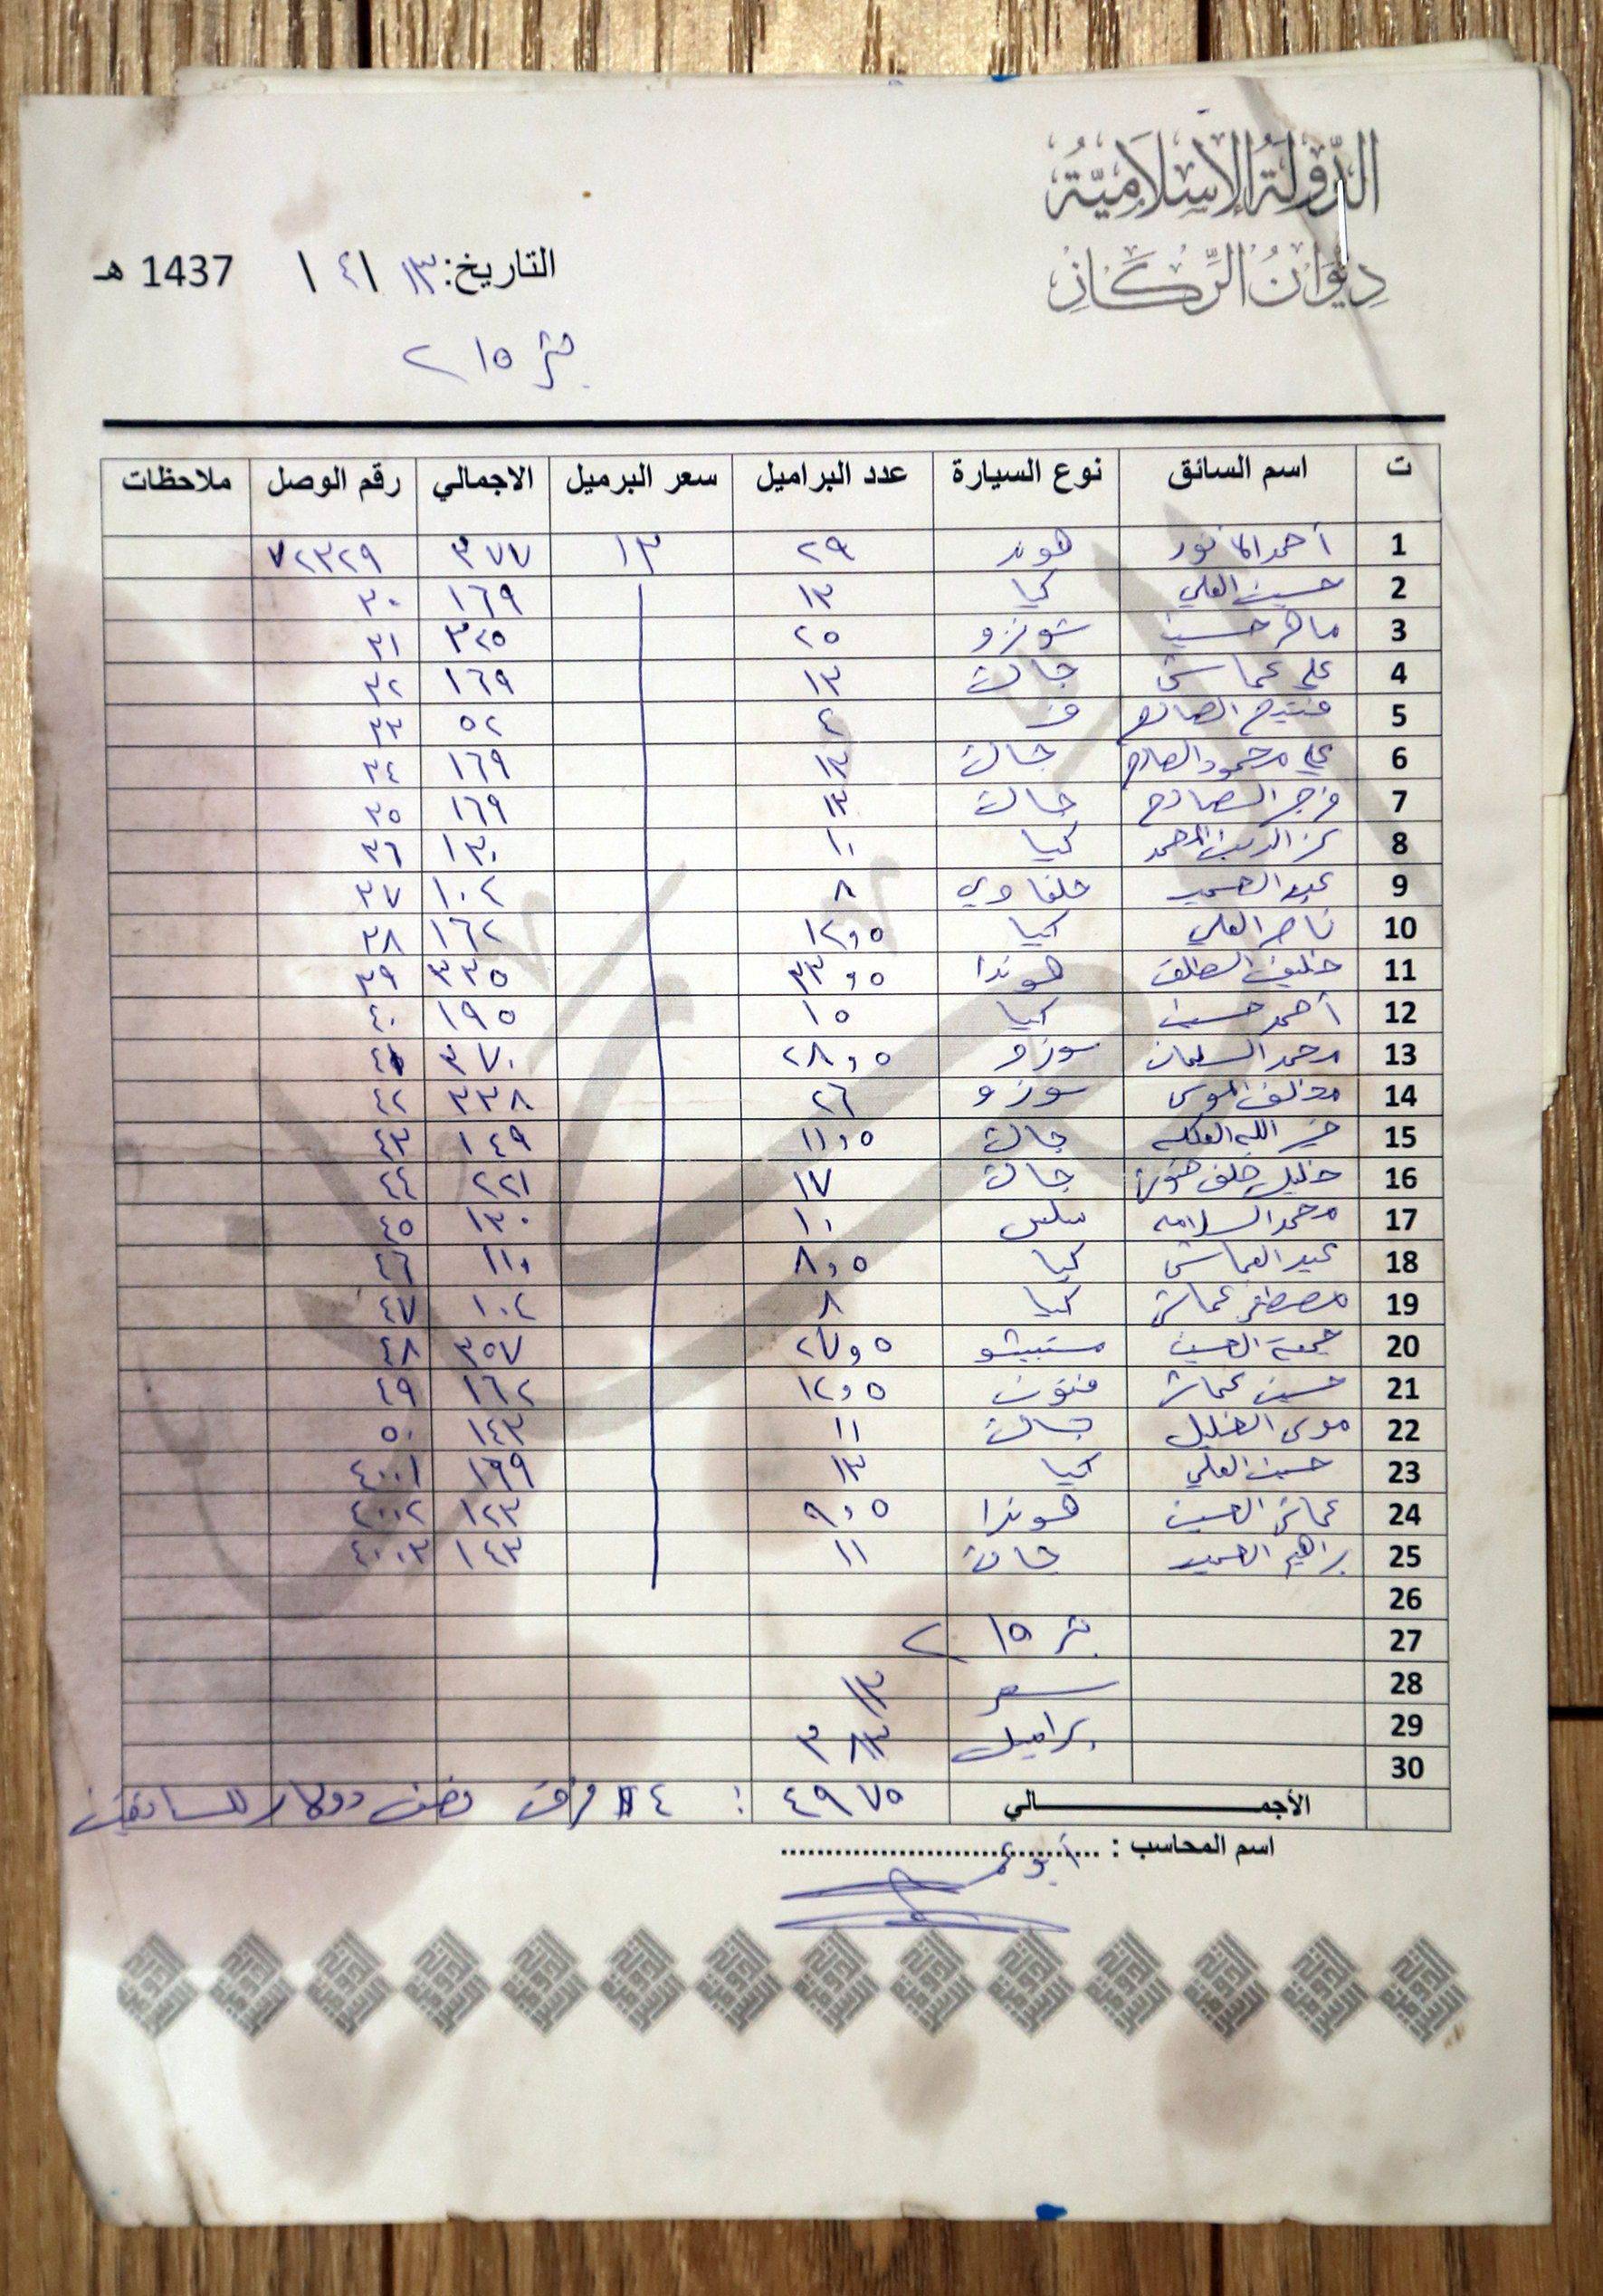 الدولة الإسلامية
ديوان الركاز
التاريخ: ١٣ / ٤ / 1437 هـ
بئر ٢١٥
ت اسم السائق نوع السيارة عدد البراميل سعر البرميل الاجمالي رقم الوصل ملاحظات
1 أحمد هوند ٢٩ ١٣ ٣٧٧ ٧٢٣٢٩
2 حسين العلي كيا ١٣ ١٦٩ ٣٠
3 ماهر حسين ٢٥ ٣٢٥ ٣١
4 علي عماش جاك ١٣ ١٦٩ ٣٢
5 الصالح ف ٤ ٥٢ ٣٣
6 علي محمود الصالح جاك ١٣ ١٦٩ ٣٤
7 فرج الصالح جاك ١٣ ١٦٩ ٣٥
8 كيا ١٠ ١٣٠ ٣٦
9 عبد الحميد حلفاوي ٨ ١٠٤ ٣٧
10 ناصر العلي كيا ١٢,٥ ١٦٢ ٣٨
11 خليف الخلف هوندا ٥, ٣٣٥ ٣٩
12 أحمد حسين كيا ١٥ ١٩٥ ٤٠
13 محمد السلمان سوزو ٢٨,٥ ٣٧٠ ٤١
14 الموسى سوزو ٢٦ ٣٣٨ ٤٢
15 خير الله العكله جاك ١١,٥ ١٤٩ ٤٣
16 خليل خلف جاك ١٧ ٢٢١ ٤٤
17 محمد السلامه ١٠ ١٣٠ ٤٥
18 عيد العماش كيا ٨,٥ ١١٠ ٤٦
19 مصطفى عماش كيا ٨ ١٠٤ ٤٧
20 جمعة الحسين ٢٧,٥ ٣٥٧ ٤٨
21 حسين عماش فوتون ١٢,٥ ١٦٢ ٤٩
22 موسى الخليل جاك ١١ ١٤٣ ٥٠
23 حسين العلي كيا ١٣ ١٦٩ ٤٠٠١
24 عماش الحسين هوندا ٩,٥ ١٢٣ ٤٠٠٢
25 براهيم الحميد جاك ١١ ١٤٣ ٤٠٠٣
26
27 بئر ٢١٥
28 سعر ١٣
29 براميل ٣٨٣
30
الأجمـــــــالي ٤٩٧٥ : ٤ فرق نصف دولار للسائقين
اسم المحاسب : ........................